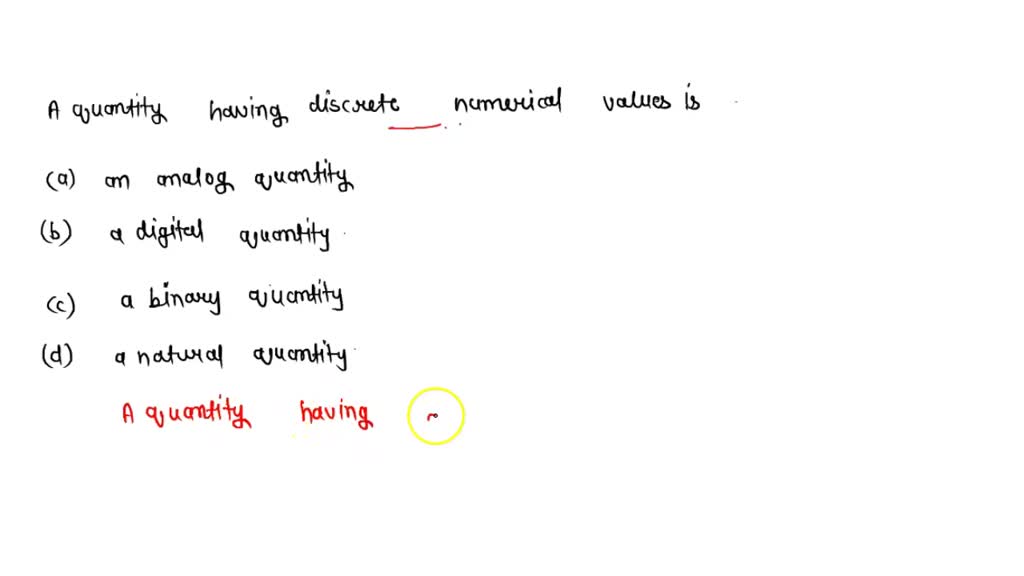 A quantity having discrete numerical values is
(a) an analog quantity
(b) a digital quantity
(c) a binary quantity
(d) a natural quantity
A quantity having